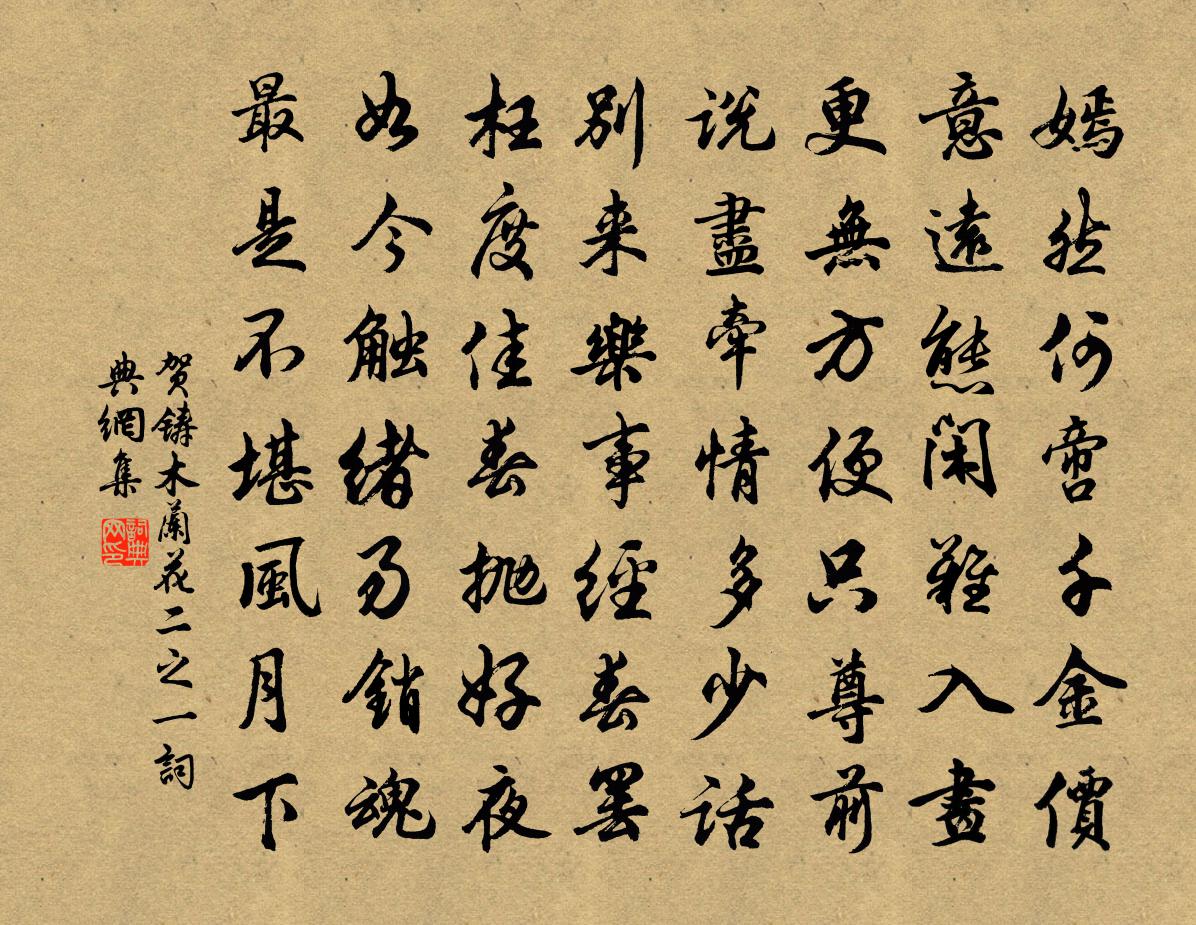 嫣然何啻千金價
意遠態閑難入畫
更無方便只尊前
說盡牽情多少話
別来樂事經春罷
枉度佳春抛好夜
如今触緒易銷魂
最是不堪風月下
贺鑄木蘭花二之一詞
典網集
詞典
网印